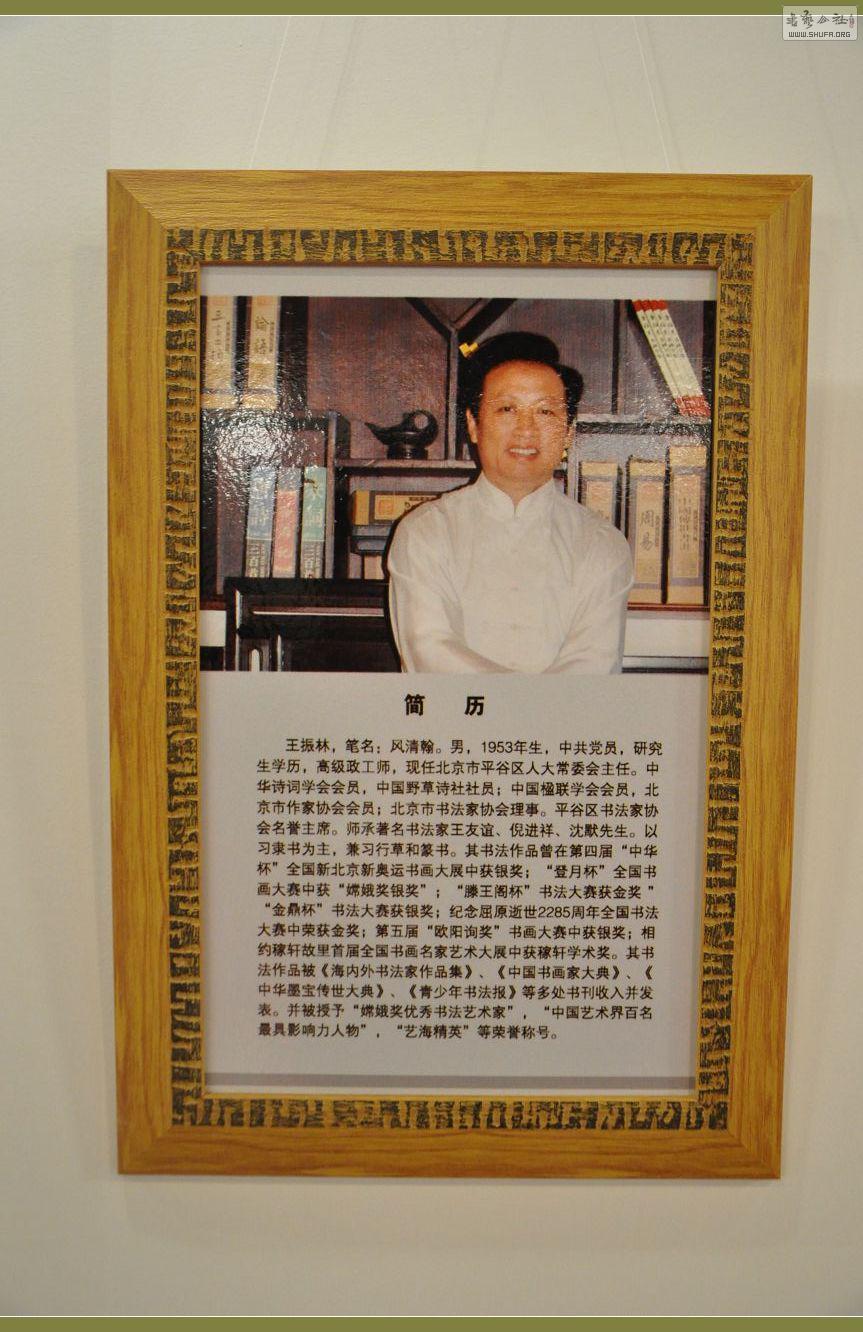 书艺公社
WWW.SHUFA.ORG
论语
周易
简 历
王振林，笔名：风清翰。男，1953年生，中共党员，研究
生学历，高级政工师，现任北京市平谷区人大常委会主任。中
华诗词学会会员，中国野草诗社社员；中国楹联学会会员，北
京市作家协会会员；北京市书法家协会理事。平谷区书法家协
会名誉主席。师承著名书法家王友谊、倪进祥、沈默先生。以
习隶书为主，兼习行草和篆书。其书法作品曾在第四届“中华
杯”全国新北京新奥运书画大展中获银奖；“登月杯”全国书
画大赛中获“嫦娥奖银奖”；“滕王阁杯”书法大赛获金奖”
“金鼎杯”书法大赛获银奖；纪念屈原逝世2285周年全国书法
大赛中荣获金奖；第五届“欧阳询奖”书画大赛中获银奖；相
约稼轩故里首届全国书画名家艺术大展中获稼轩学术奖。其书
法作品被《海内外书法家作品集》、《中国书画家大典》、《
中华墨宝传世大典》、《青少年书法报》等多处书刊收入并发
表。并被授予“嫦娥奖优秀书法艺术家”，“中国艺术界百名
最具影响力人物”，“艺海精英”等荣誉称号。